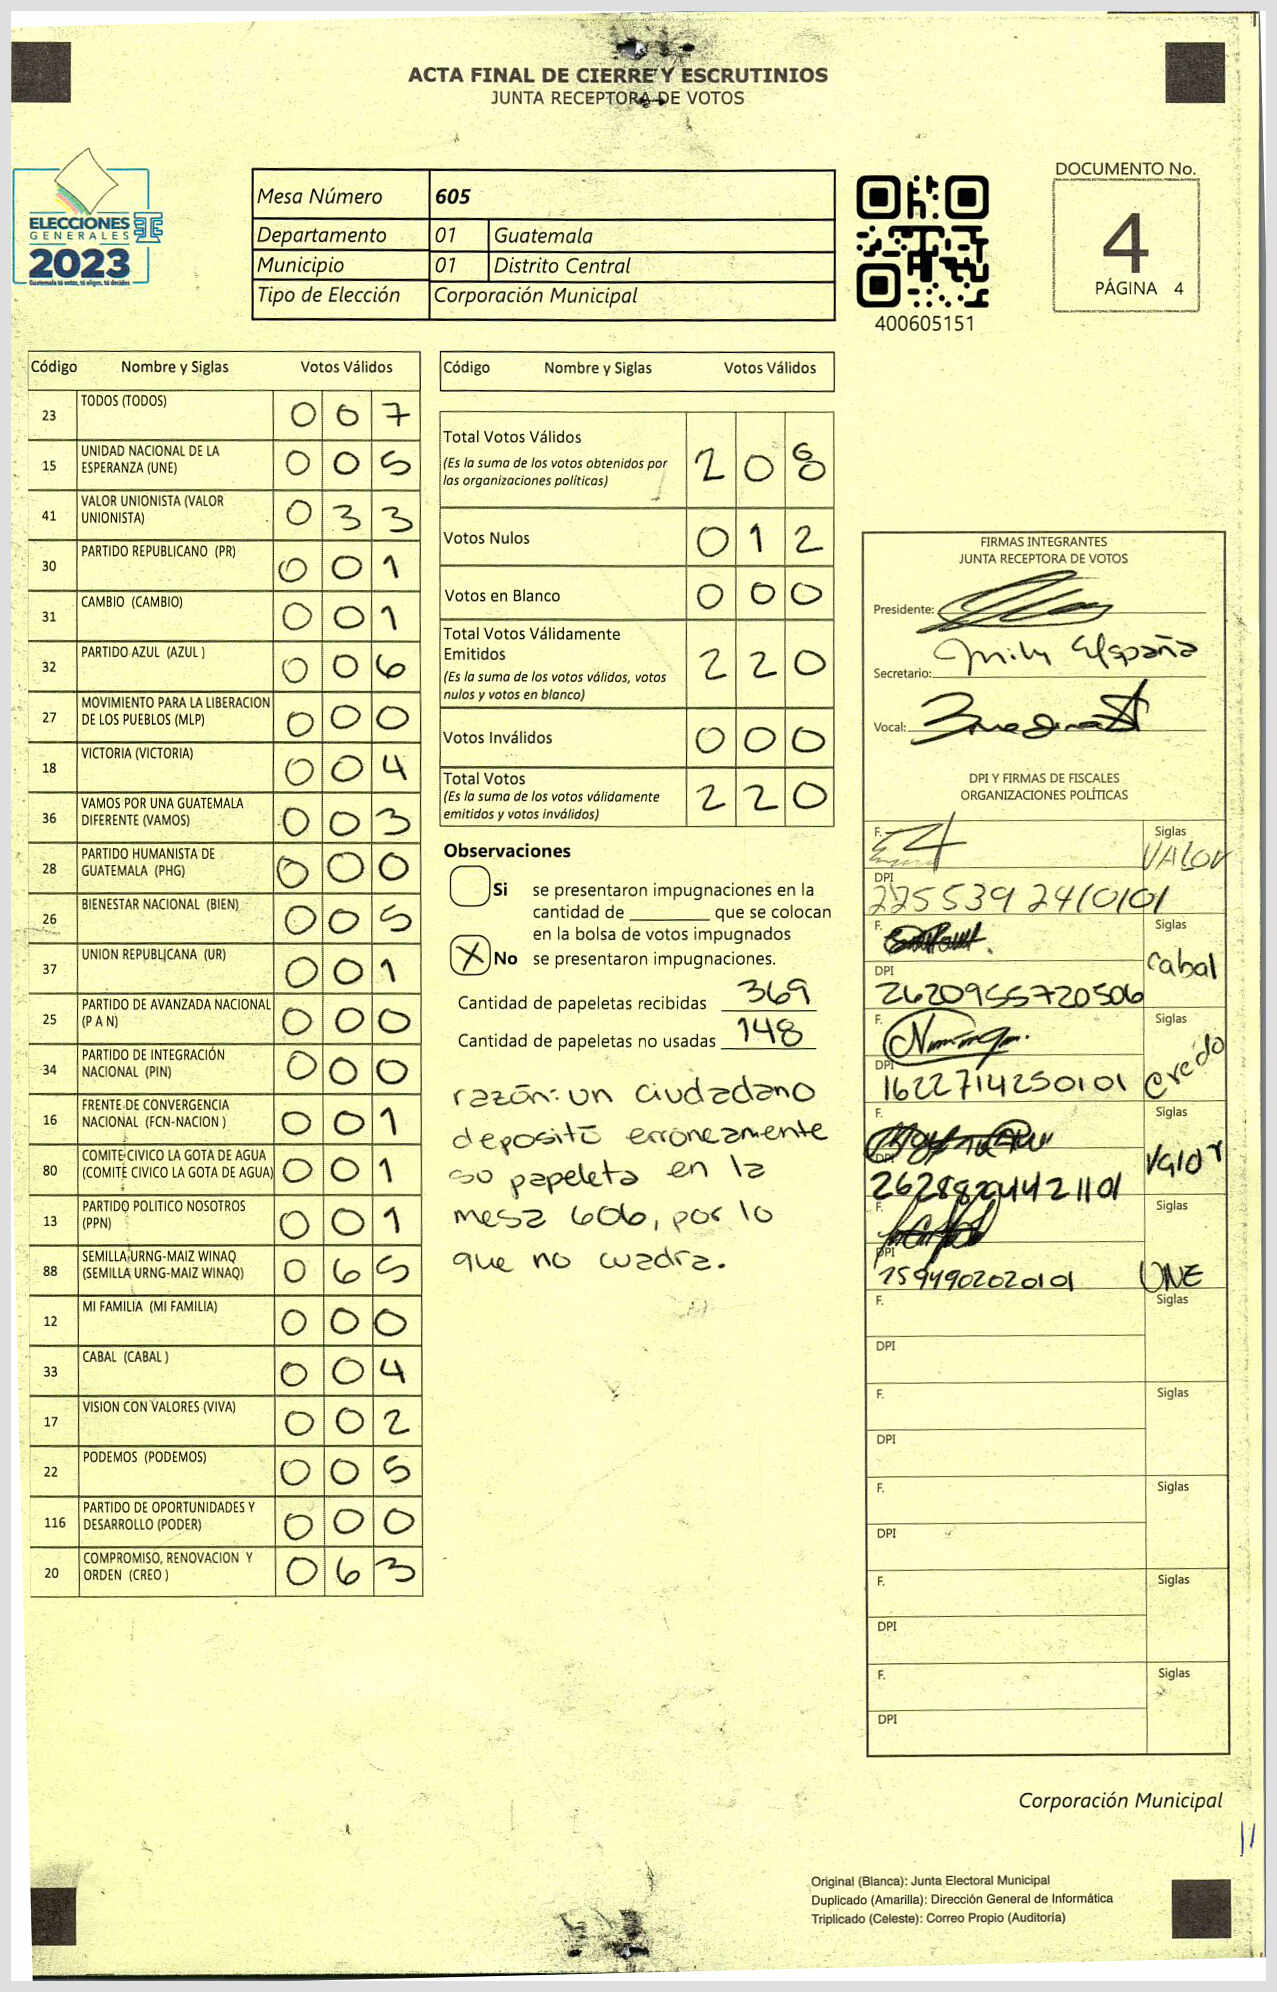 ACTA FINAL DE CIERRE Y ESCRUTINIOS
JUNTA RECEPTORA DE VOTOS
ELECCIONES
GENERALES
2023
Guatemala tú votas, tú eliges, tú decides
Mesa Número 605
Departamento 01 Guatemala
Municipio 01 Distrito Central
Tipo de Elección Corporación Municipal
400605151
DOCUMENTO No.
4
PÁGINA 4
Código Nombre y Siglas Votos Válidos
23 TODOS (TODOS) 0 0 7
15 UNIDAD NACIONAL DE LA
ESPERANZA (UNE) 0 0 5
41 VALOR UNIONISTA (VALOR
UNIONISTA) 0 3 3
30 PARTIDO REPUBLICANO (PR) 0 0 1
31 CAMBIO (CAMBIO) 0 0 1
32 PARTIDO AZUL (AZUL ) 0 0 6
27 MOVIMIENTO PARA LA LIBERACION
DE LOS PUEBLOS (MLP) 0 0 0
18 VICTORIA (VICTORIA) 0 0 4
36 VAMOS POR UNA GUATEMALA
DIFERENTE (VAMOS) 0 0 3
28 PARTIDO HUMANISTA DE
GUATEMALA (PHG) 0 0 0
26 BIENESTAR NACIONAL (BIEN) 0 0 5
37 UNION REPUBLICANA (UR) 0 0 1
25 PARTIDO DE AVANZADA NACIONAL
(P A N) 0 0 0
34 PARTIDO DE INTEGRACIÓN
NACIONAL (PIN) 0 0 0
16 FRENTE DE CONVERGENCIA
NACIONAL (FCN-NACION ) 0 0 1
80 COMITE CIVICO LA GOTA DE AGUA
(COMITE CIVICO LA GOTA DE AGUA) 0 0 1
13 PARTIDO POLITICO NOSOTROS
(PPN) 0 0 1
88 SEMILLA URNG-MAIZ WINAQ
(SEMILLA URNG-MAIZ WINAQ) 0 6 5
12 MI FAMILIA (MI FAMILIA) 0 0 0
33 CABAL (CABAL ) 0 0 4
17 VISION CON VALORES (VIVA) 0 0 2
22 PODEMOS (PODEMOS) 0 0 5
116 PARTIDO DE OPORTUNIDADES Y
DESARROLLO (PODER) 0 0 0
20 COMPROMISO, RENOVACION Y
ORDEN (CREO ) 0 6 3
Código Nombre y Siglas Votos Válidos
Total Votos Válidos 2 0 8
(Es la suma de los votos obtenidos por
las organizaciones políticas)
Votos Nulos 0 1 2
Votos en Blanco 0 0 0
Total Votos Válidamente
Emitidos 2 2 0
(Es la suma de los votos válidos, votos
nulos y votos en blanco)
Votos Inválidos 0 0 0
Total Votos 2 2 0
(Es la suma de los votos válidamente
emitidos y votos inválidos)
Observaciones
Si se presentaron impugnaciones en la
cantidad de ________ que se colocan
en la bolsa de votos impugnados
X No se presentaron impugnaciones.
Cantidad de papeletas recibidas 369
Cantidad de papeletas no usadas 148
razón: un ciudadano
depositó erroneamente
su papeleta en la
mesa 606, por lo
que no cuadra.
FIRMAS INTEGRANTES
JUNTA RECEPTORA DE VOTOS
Presidente:
Secretario: España
Vocal:
DPI Y FIRMAS DE FISCALES
ORGANIZACIONES POLÍTICAS
F. Siglas
VALOR
DPI
F. Siglas
Cabal
DPI
2620955720506
F. Siglas
Credo
DPI
1622714250101
F. Siglas
Valor
DPI
F. Siglas
DPI
1594902020101 UNE
F. Siglas
DPI
F. Siglas
DPI
F. Siglas
DPI
F. Siglas
DPI
F. Siglas
DPI
Corporación Municipal
11
Original (Blanca): Junta Electoral Municipal
Duplicado (Amarilla): Dirección General de Informática
Triplicado (Celeste): Correo Propio (Auditoría)